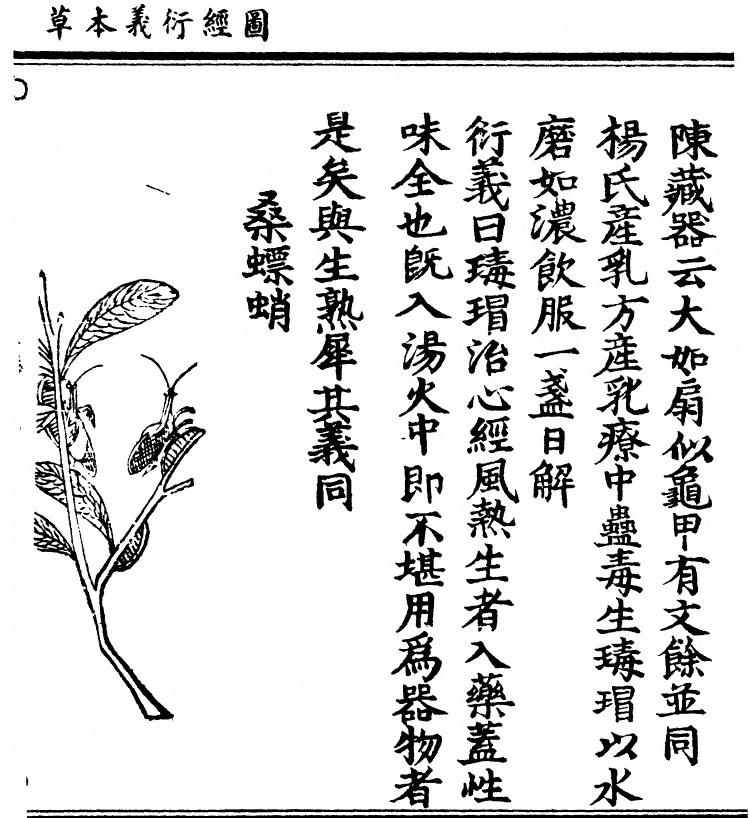 圖經衍義本草
陳藏器云大如扇似龜甲有文餘並同
楊氏産乳方産乳療中蠱毒生瑇瑁以水
磨如濃飲服一盞日解
衍義曰瑇瑁治心經風熱生者入藥蓋性
味全也旣入湯火中即不堪用爲器物者
是矣與生熟犀其義同
桑螵蛸